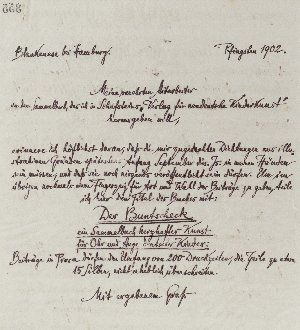 Blankenese bei Hamburg. Pfingsten 1902.
Meine geehrten Mitarbeiter
an dem Sammelbuch, das ich in Schafsteins Verlag für neudeutsche Kinderkunst
herausgeben will,
erinnere ich höflichst daran, daß die mir zugedachten Dichtungen aus illu-
strativen Gründen spätestens Anfang September ds. Js. in meinen Händen
sein müssen, und daß sie noch nirgends veröffentlicht sein dürfen. Um im
übrigen nochmals einen Fingerzeig für Art und Wahl der Beiträge zu geben, teile
ich hier den Titel des Buches mit:
Der Buntscheck
ein Sammelbuch herzhafter Kunst
für Ohr und Auge deutscher Kinder.
Beiträge in Prosa dürfen den Umfang von 200 Druckzeilen, die Zeile zu etwa
15 Silben, nicht überschreiten.
Mit ergebenem Gruß